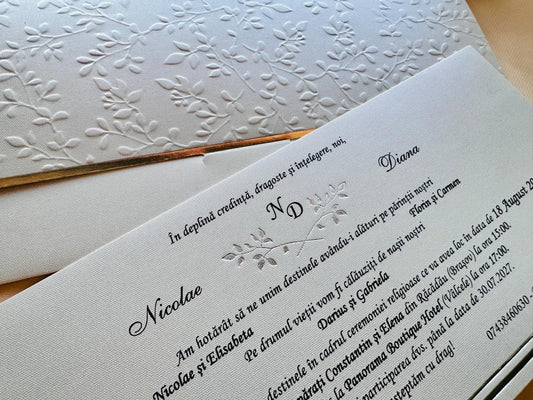 În deplină credință, dragoste și înțelegere, noi,
Nicolae
Diana
N
D
Am hotărât să ne unim destinele avându-i alături pe părinții noștri
Nicolae și Elisabeta
Florin și Carmen
Pe drumul vieții vom fi călăuziți de nașii noștri
Darius și Gabriela
destinele în cadrul ceremoniei religioase ce va avea loc în data de 18 August 20
părați Constantin și Elena din Răcădău (Brașov) la ora 15:00.
la Panorama Boutique Hotel (Vâlcele) la ora 17:00.
participarea dvs. până la data de 30.07.2027.
șteptăm cu drag!
07438460630 -